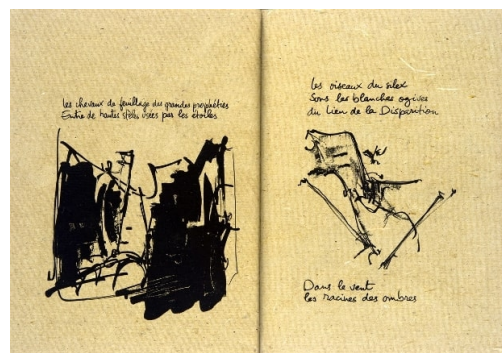 Les chevaux de feuillage des grandes prophéties
Entre de hautes stèles usées par les étoiles
Les oiseaux du silex
Sous les blanches ogives
du Lien de la Disparition
Dans le vent
les racines des ombres